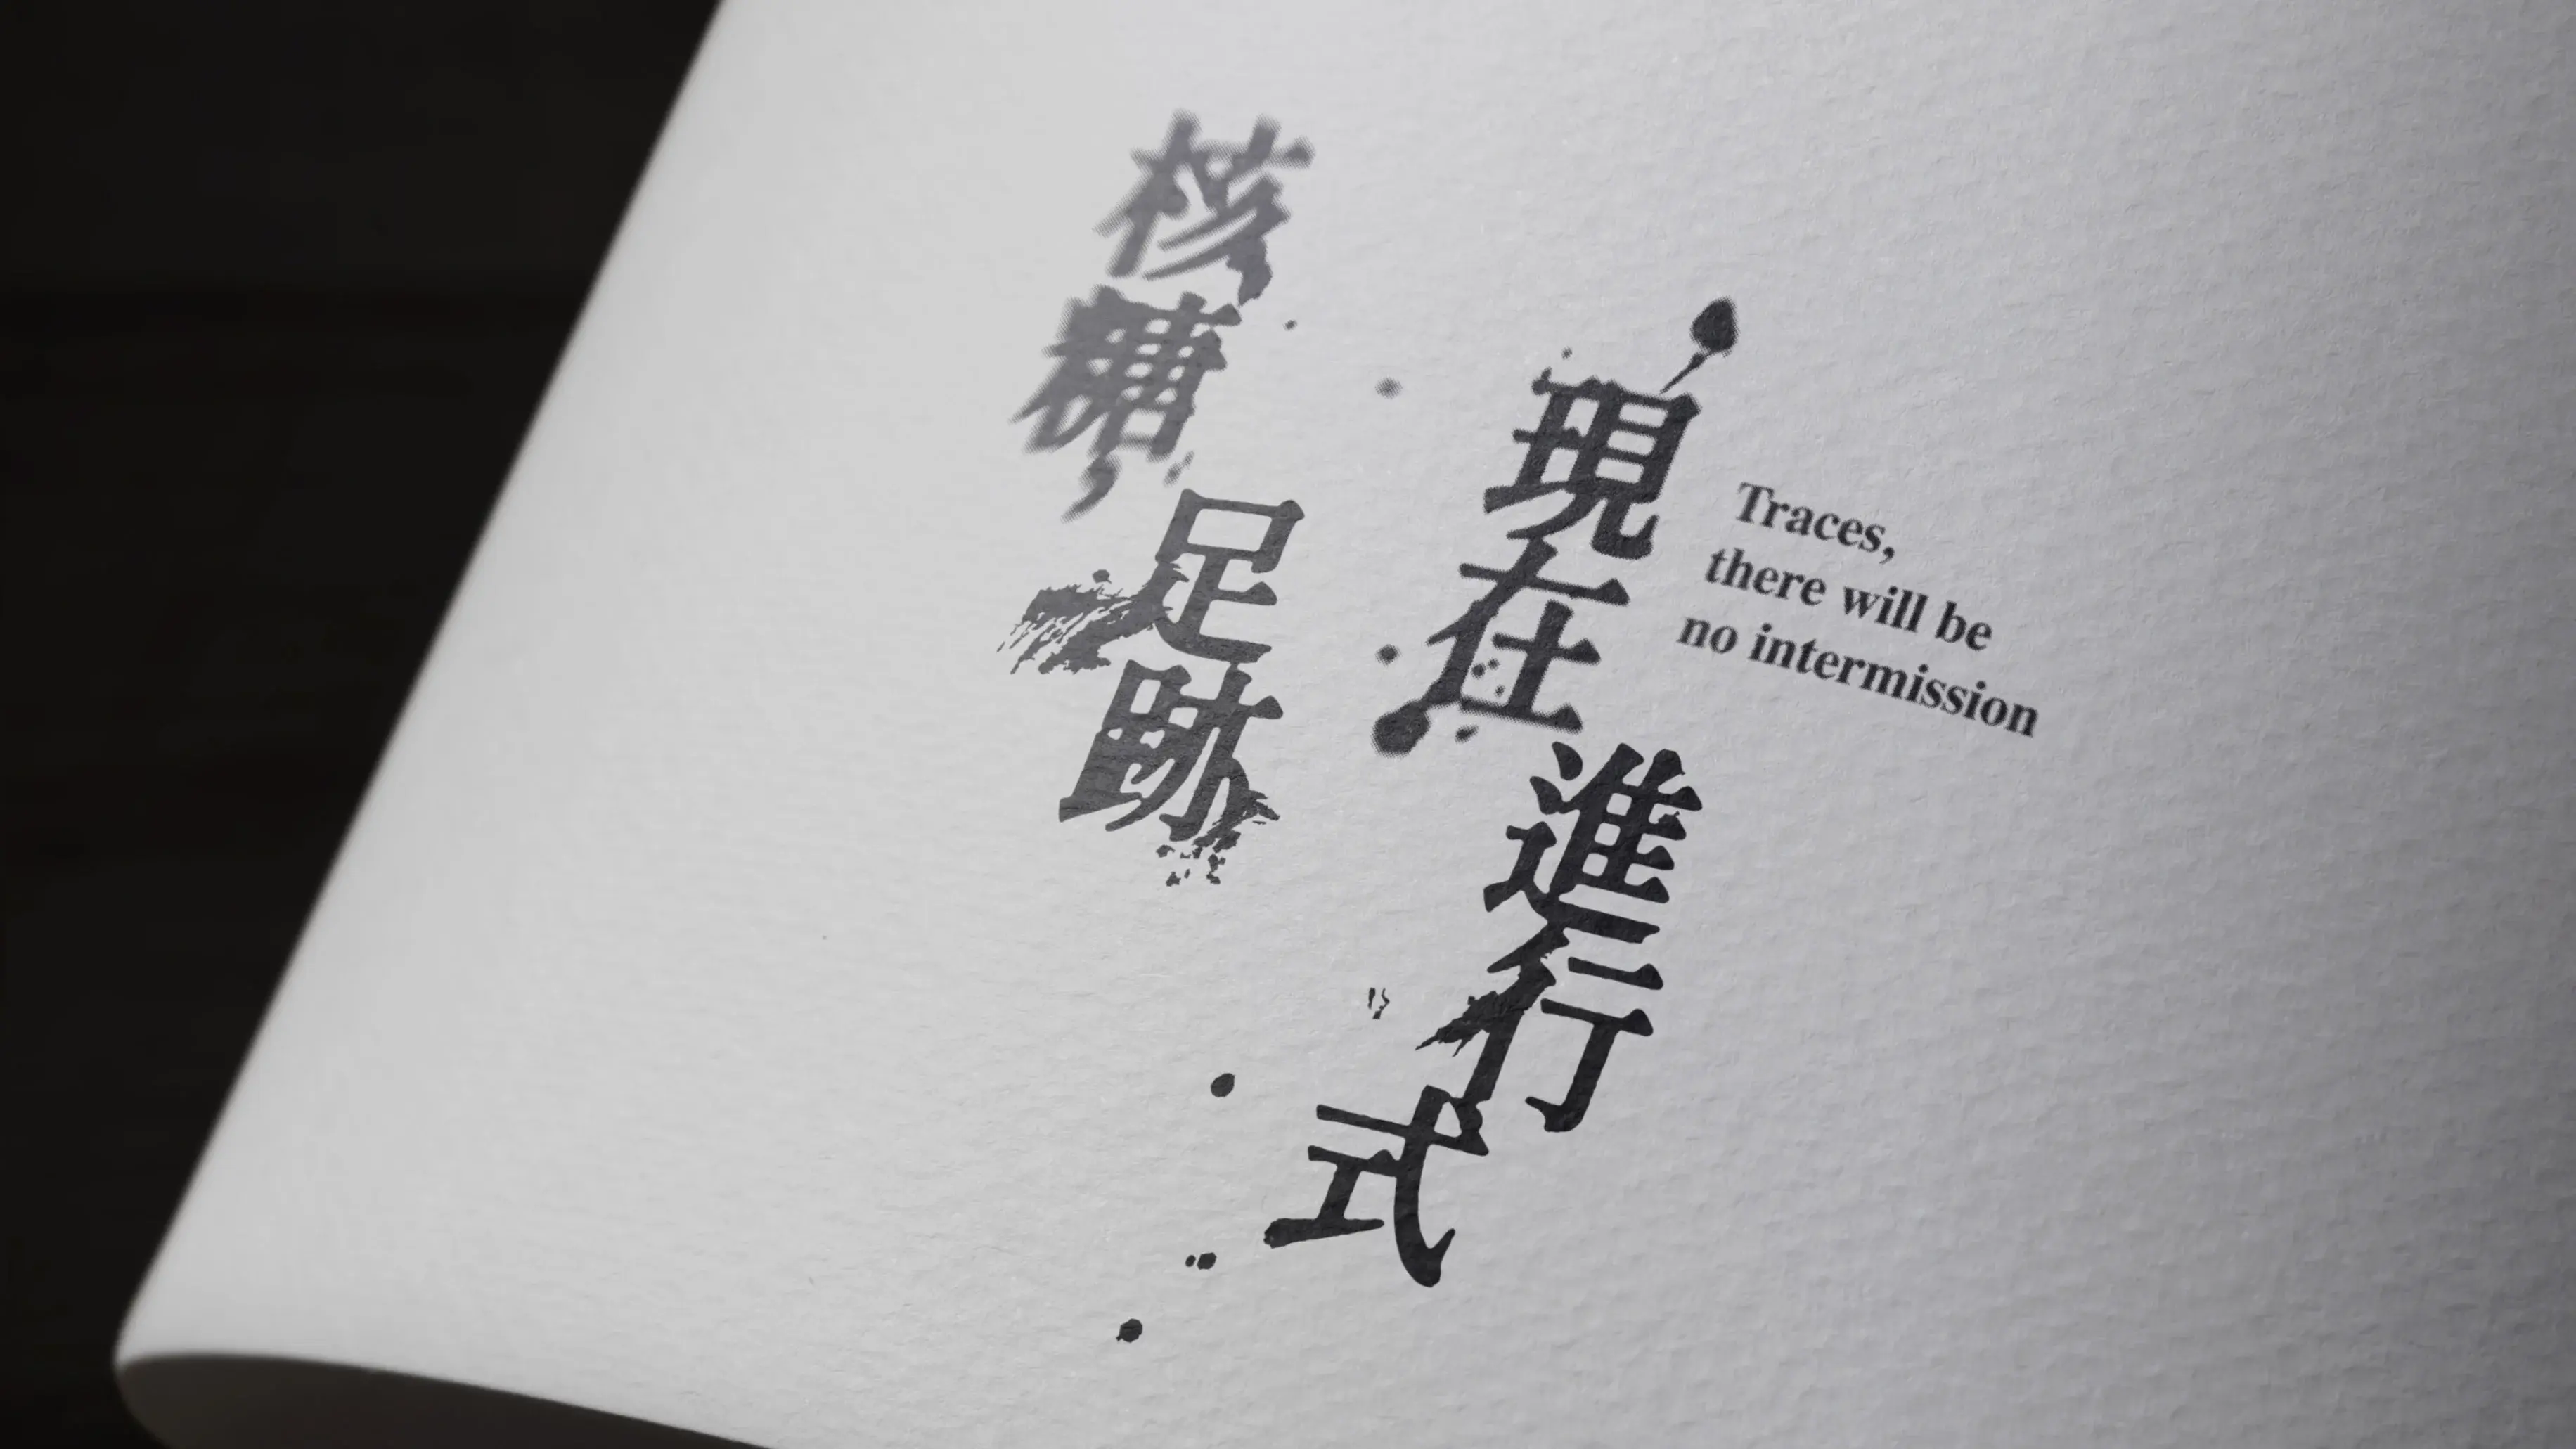 現在進行式
核糖足跡
Traces,
there will be
no intermission